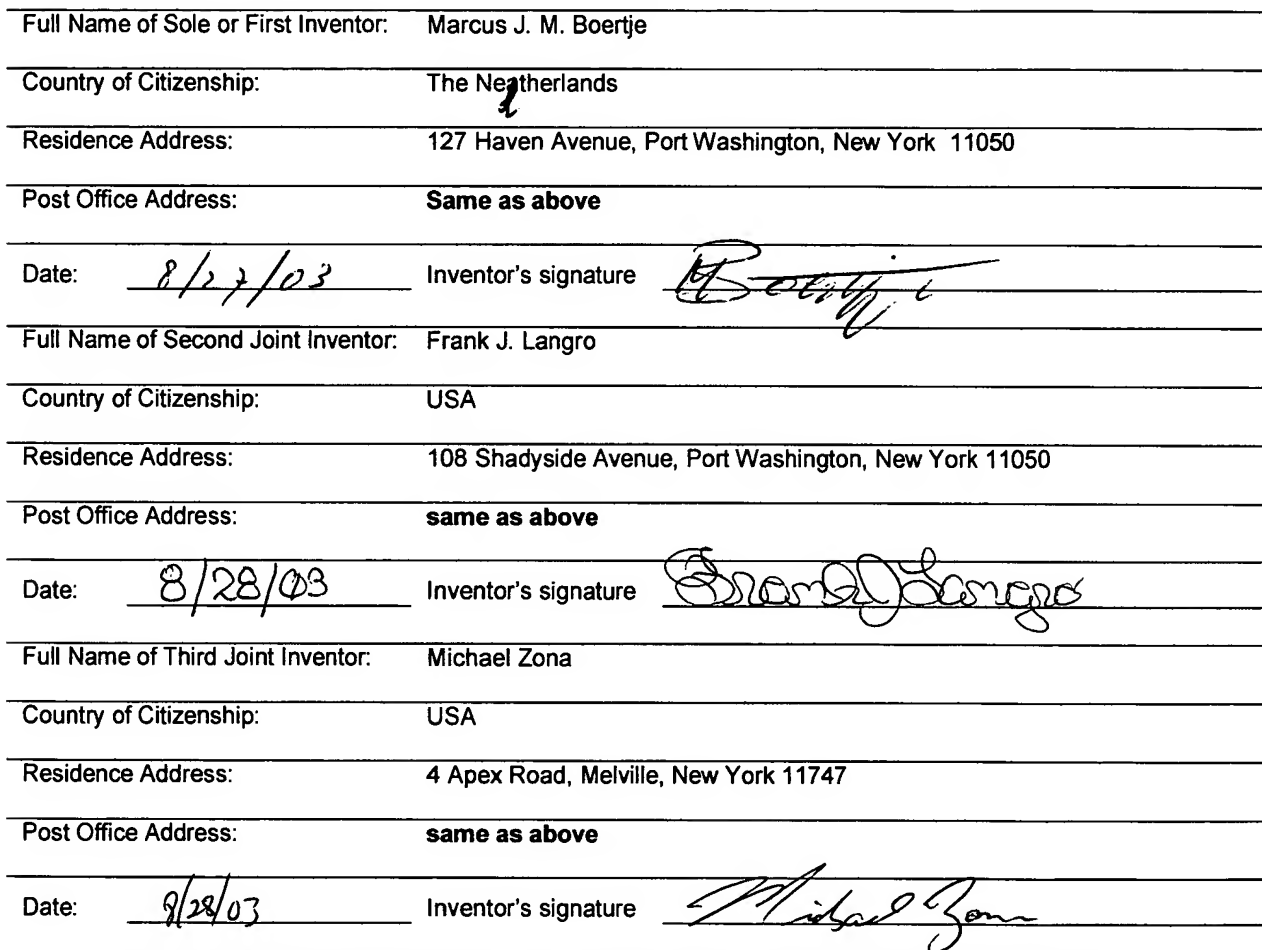 Full Name of Sole or First Inventor: Marcus J. M. Boertje
Country of Citizenship: The Neatherlands
Residence Address: 127 Haven Avenue, Port Washington, New York 11050
Post Office Address: Same as above
Date: 8/27/03 Inventor's signature MBoertje
Full Name of Second Joint Inventor: Frank J. Langro
Country of Citizenship: USA
Residence Address: 108 Shadyside Avenue, Port Washington, New York 11050
Post Office Address: same as above
Date: 8/28/03 Inventor's signature Frank J Langro
Full Name of Third Joint Inventor: Michael Zona
Country of Citizenship: USA
Residence Address: 4 Apex Road, Melville, New York 11747
Post Office Address: same as above
Date: 8/28/03 Inventor's signature Michael Zona